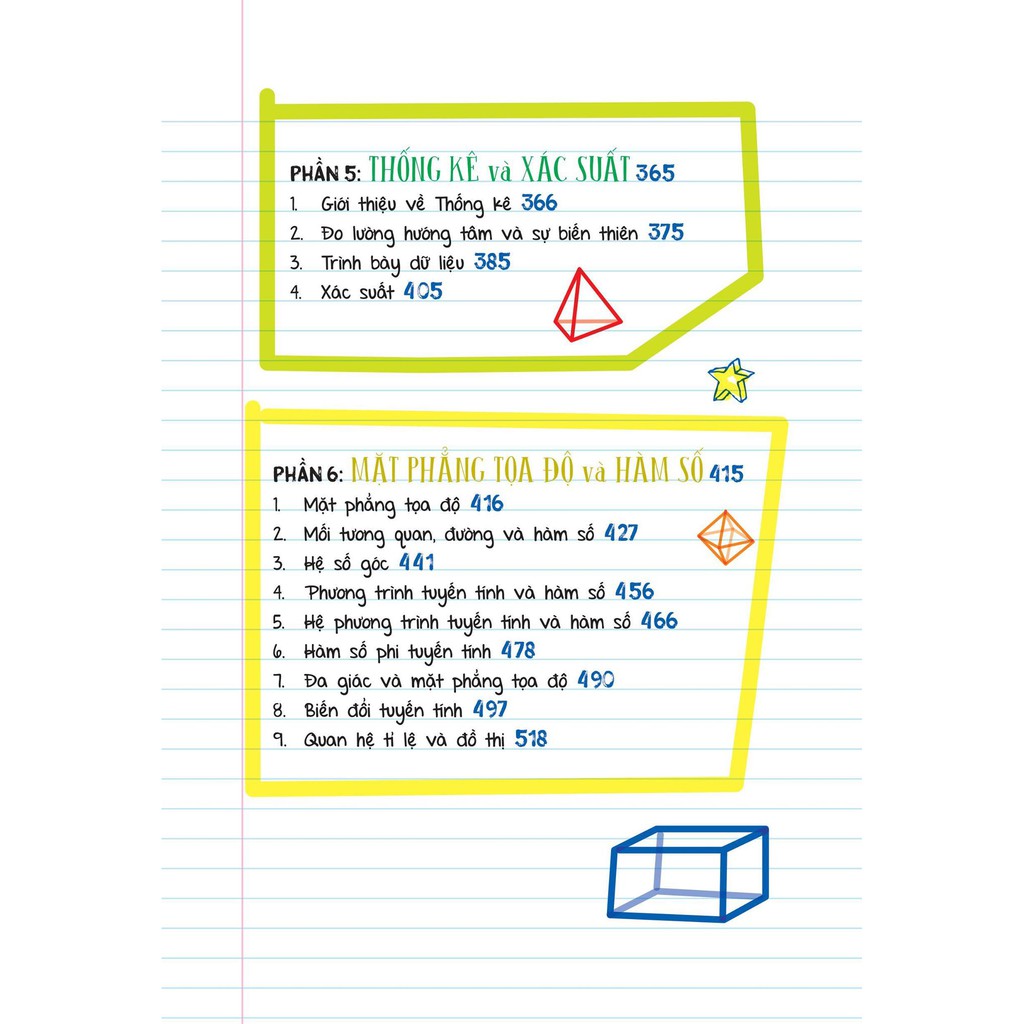 PHẦN 5: THỐNG KÊ và XÁC SUẤT 365
1. Giới thiệu về Thống kê 366
2. Đo lường hướng tâm và sự biến thiên 375
3. Trình bày dữ liệu 385
4. Xác suất 405
PHẦN 6: MẶT PHẲNG TỌA ĐỘ và HÀM SỐ 415
1. Mặt phẳng tọa độ 416
2. Mối tương quan, đường và hàm số 427
3. Hệ số góc 441
4. Phương trình tuyến tính và hàm số 456
5. Hệ phương trình tuyến tính và hàm số 466
6. Hàm số phi tuyến tính 478
7. Đa giác và mặt phẳng tọa độ 490
8. Biến đổi tuyến tính 497
9. Quan hệ tỉ lệ và đồ thị 518